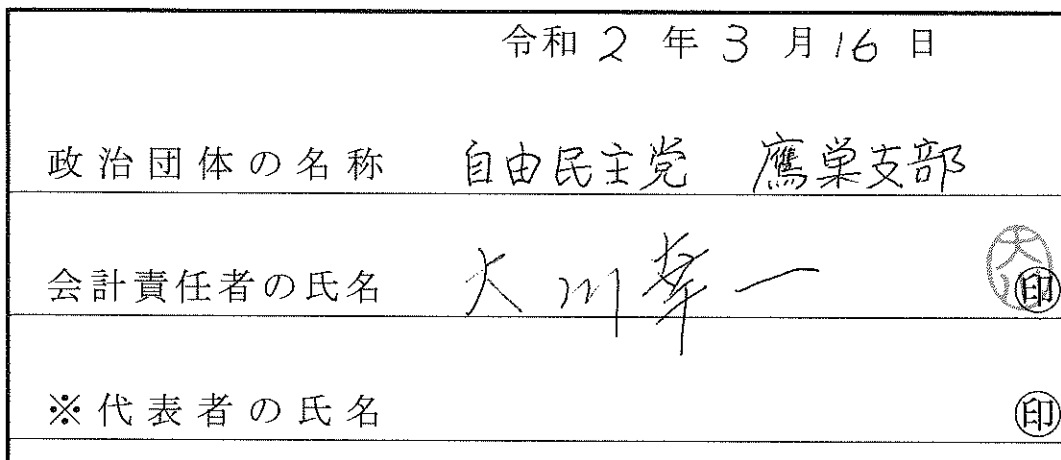 令和 2 年 3 月 16 日
政治団体の名称 自由民主党 鷹巣支部
会計責任者の氏名 大川幸一 印
※代表者の氏名 印